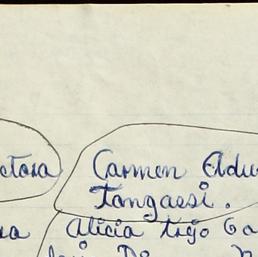 ctora Carmen Adu
Tangassi.
sa Alicia trejo Ga